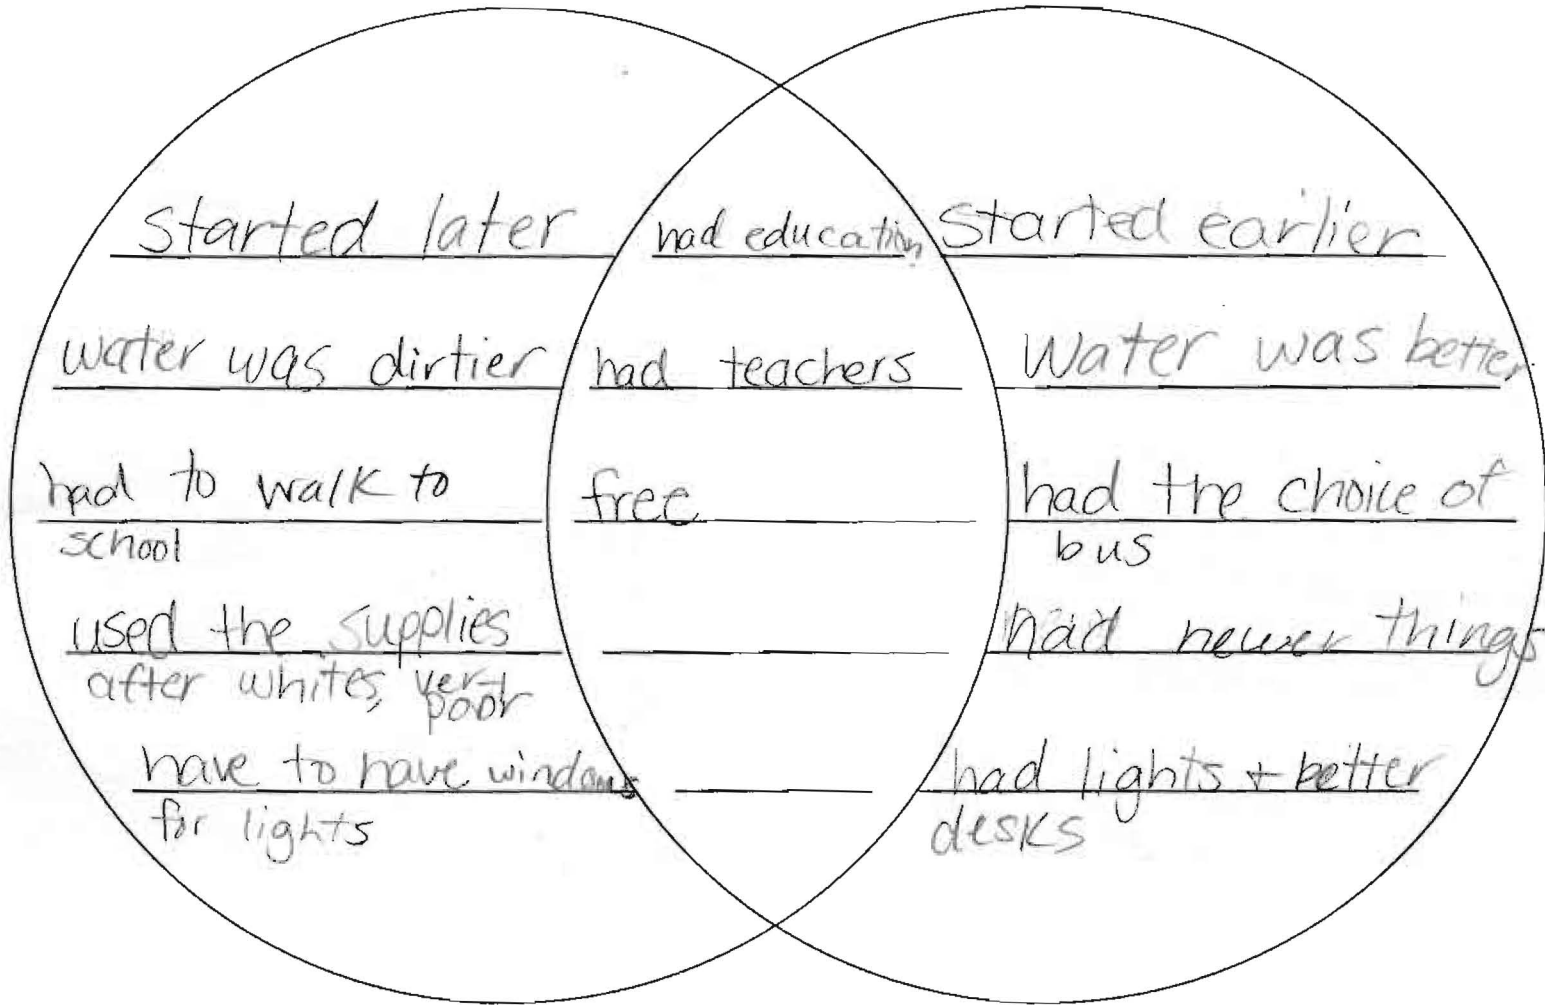 started later
water was dirtier
had to walk to
school
used the supplies
after whites, very
poor
have to have windows
for lights
had education
had teachers
free
started earlier
Water was better
had the choice of
bus
had newer things
had lights + better
desks